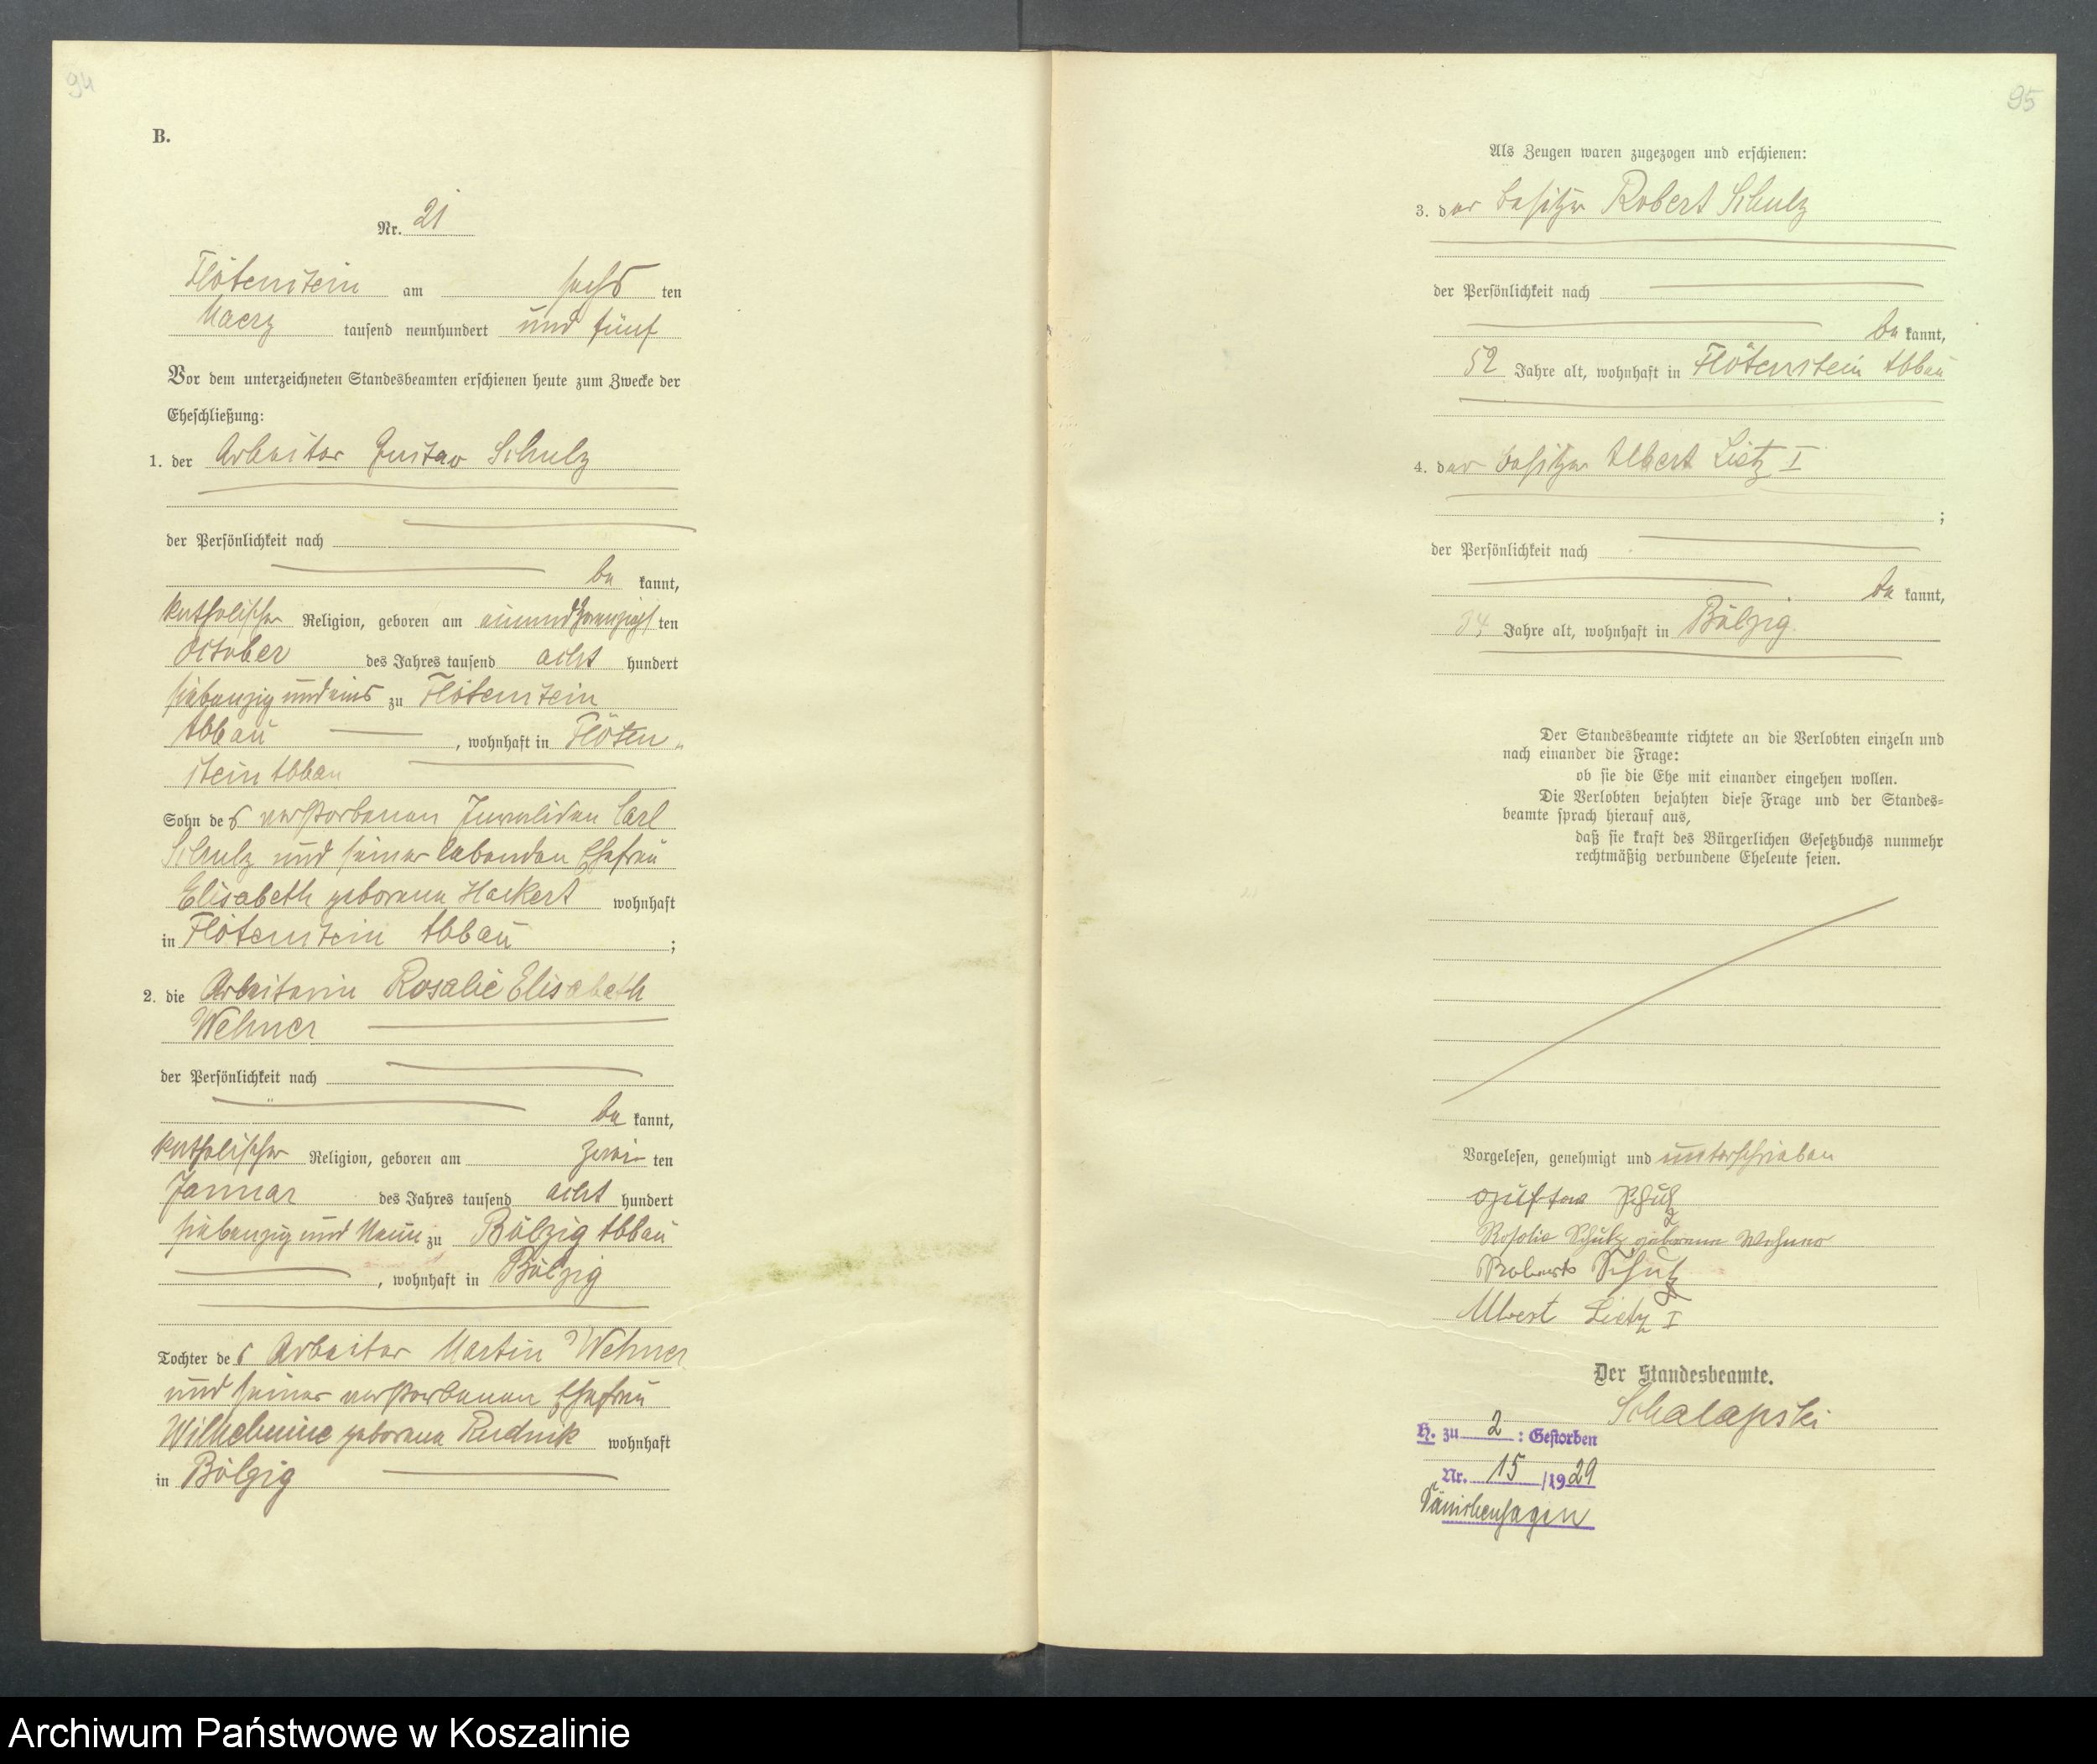 94
B.
Nr. 21
Flötenstein am sechs ten
Maerz tausend neunhundert und fünf
Vor dem unterzeichneten Standesbeamten erschienen heute zum Zwecke der
Eheschließung:
1. der Arbeiter Gustav Schulz
der Persönlichkeit nach
be kannt,
katholischer Religion, geboren am einundzwanzigsten
October des Jahres tausend acht hundert
siebenzig und eins zu Flötenstein
Abbau, wohnhaft in Flöten-
stein Abbau
Sohn des verstorbenen Invaliden Carl
Schulz und seiner lebenden Ehefrau
Elisabeth geborene Hackert wohnhaft
in Flötenstein Abbau;
2. die Arbeiterin Rosalie Elisabeth
Wehner
der Persönlichkeit nach
be kannt,
katholischer Religion, geboren am zwei ten
Januar des Jahres tausend acht hundert
siebenzig und Neun zu Bölzig Abbau
, wohnhaft in Bölzig
Tochter des Arbeiter Martin Wehner
und seiner verstorbenen Ehefrau
Wilhelmine geborene Rudnik wohnhaft
in Bölzig
95
Als Zeugen waren zugezogen und erschienen:
3. der Besitzer Robert Schulz
der Persönlichkeit nach
be kannt,
52 Jahre alt, wohnhaft in Flötenstein Abbau
4. der Besitzer Albert Lietz I
;
der Persönlichkeit nach
be kannt,
34 Jahre alt, wohnhaft in Bölzig.
Der Standesbeamte richtete an die Verlobten einzeln und
nach einander die Frage:
ob sie die Ehe mit einander eingehen wollen.
Die Verlobten bejahten diese Frage und der Standes-
beamte sprach hierauf aus,
daß sie kraft des Bürgerlichen Gesetzbuchs nunmehr
rechtmäßig verbundene Eheleute seien.
Vorgelesen, genehmigt und unterschrieben
Gustav Schulz
Rosalie Schulz geborene Wehner
Robert Schulz
Albert Lietz I
Der Standesbeamte.
Schalapski
H. zu 2 : Gestorben
Nr. 15 /1929
Dänischenhagen
Archiwum Państwowe w Koszalinie